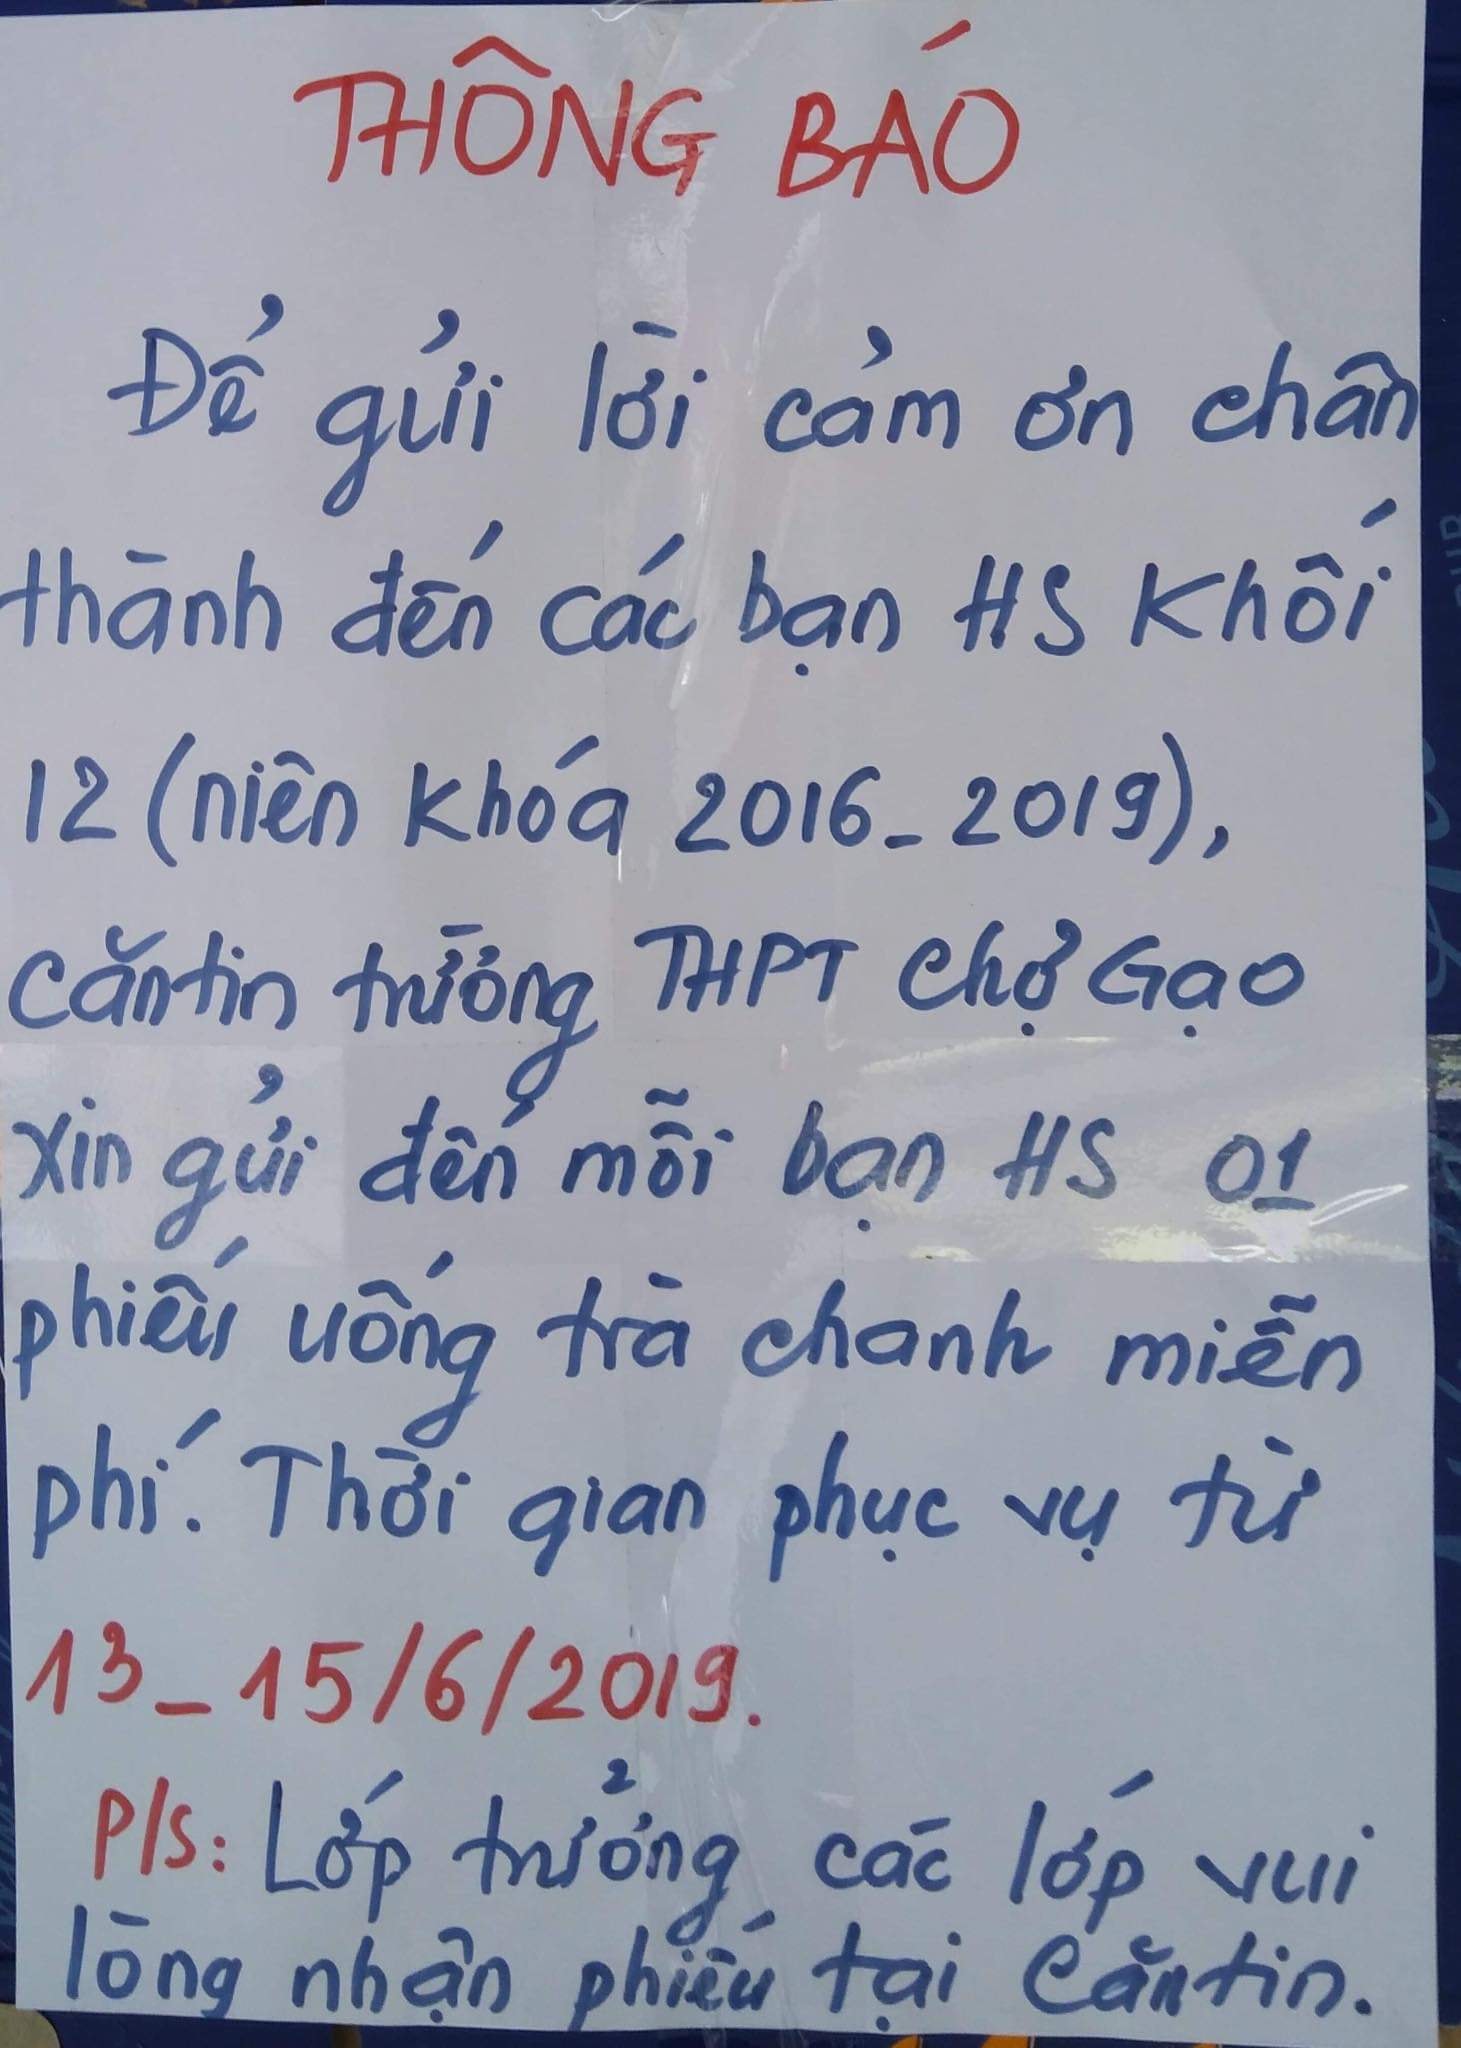 THÔNG BÁO
Để gửi lời cảm ơn chân
thành đến các bạn HS Khối
12 (niên khóa 2016_2019),
Căntin trường THPT Chợ Gạo
xin gửi đến mỗi bạn HS 01
phiếu uống trà chanh miễn
phí. Thời gian phục vụ từ
13_15/6/2019.
P/s: Lớp trưởng các lớp vui
lòng nhận phiếu tại Căntin.